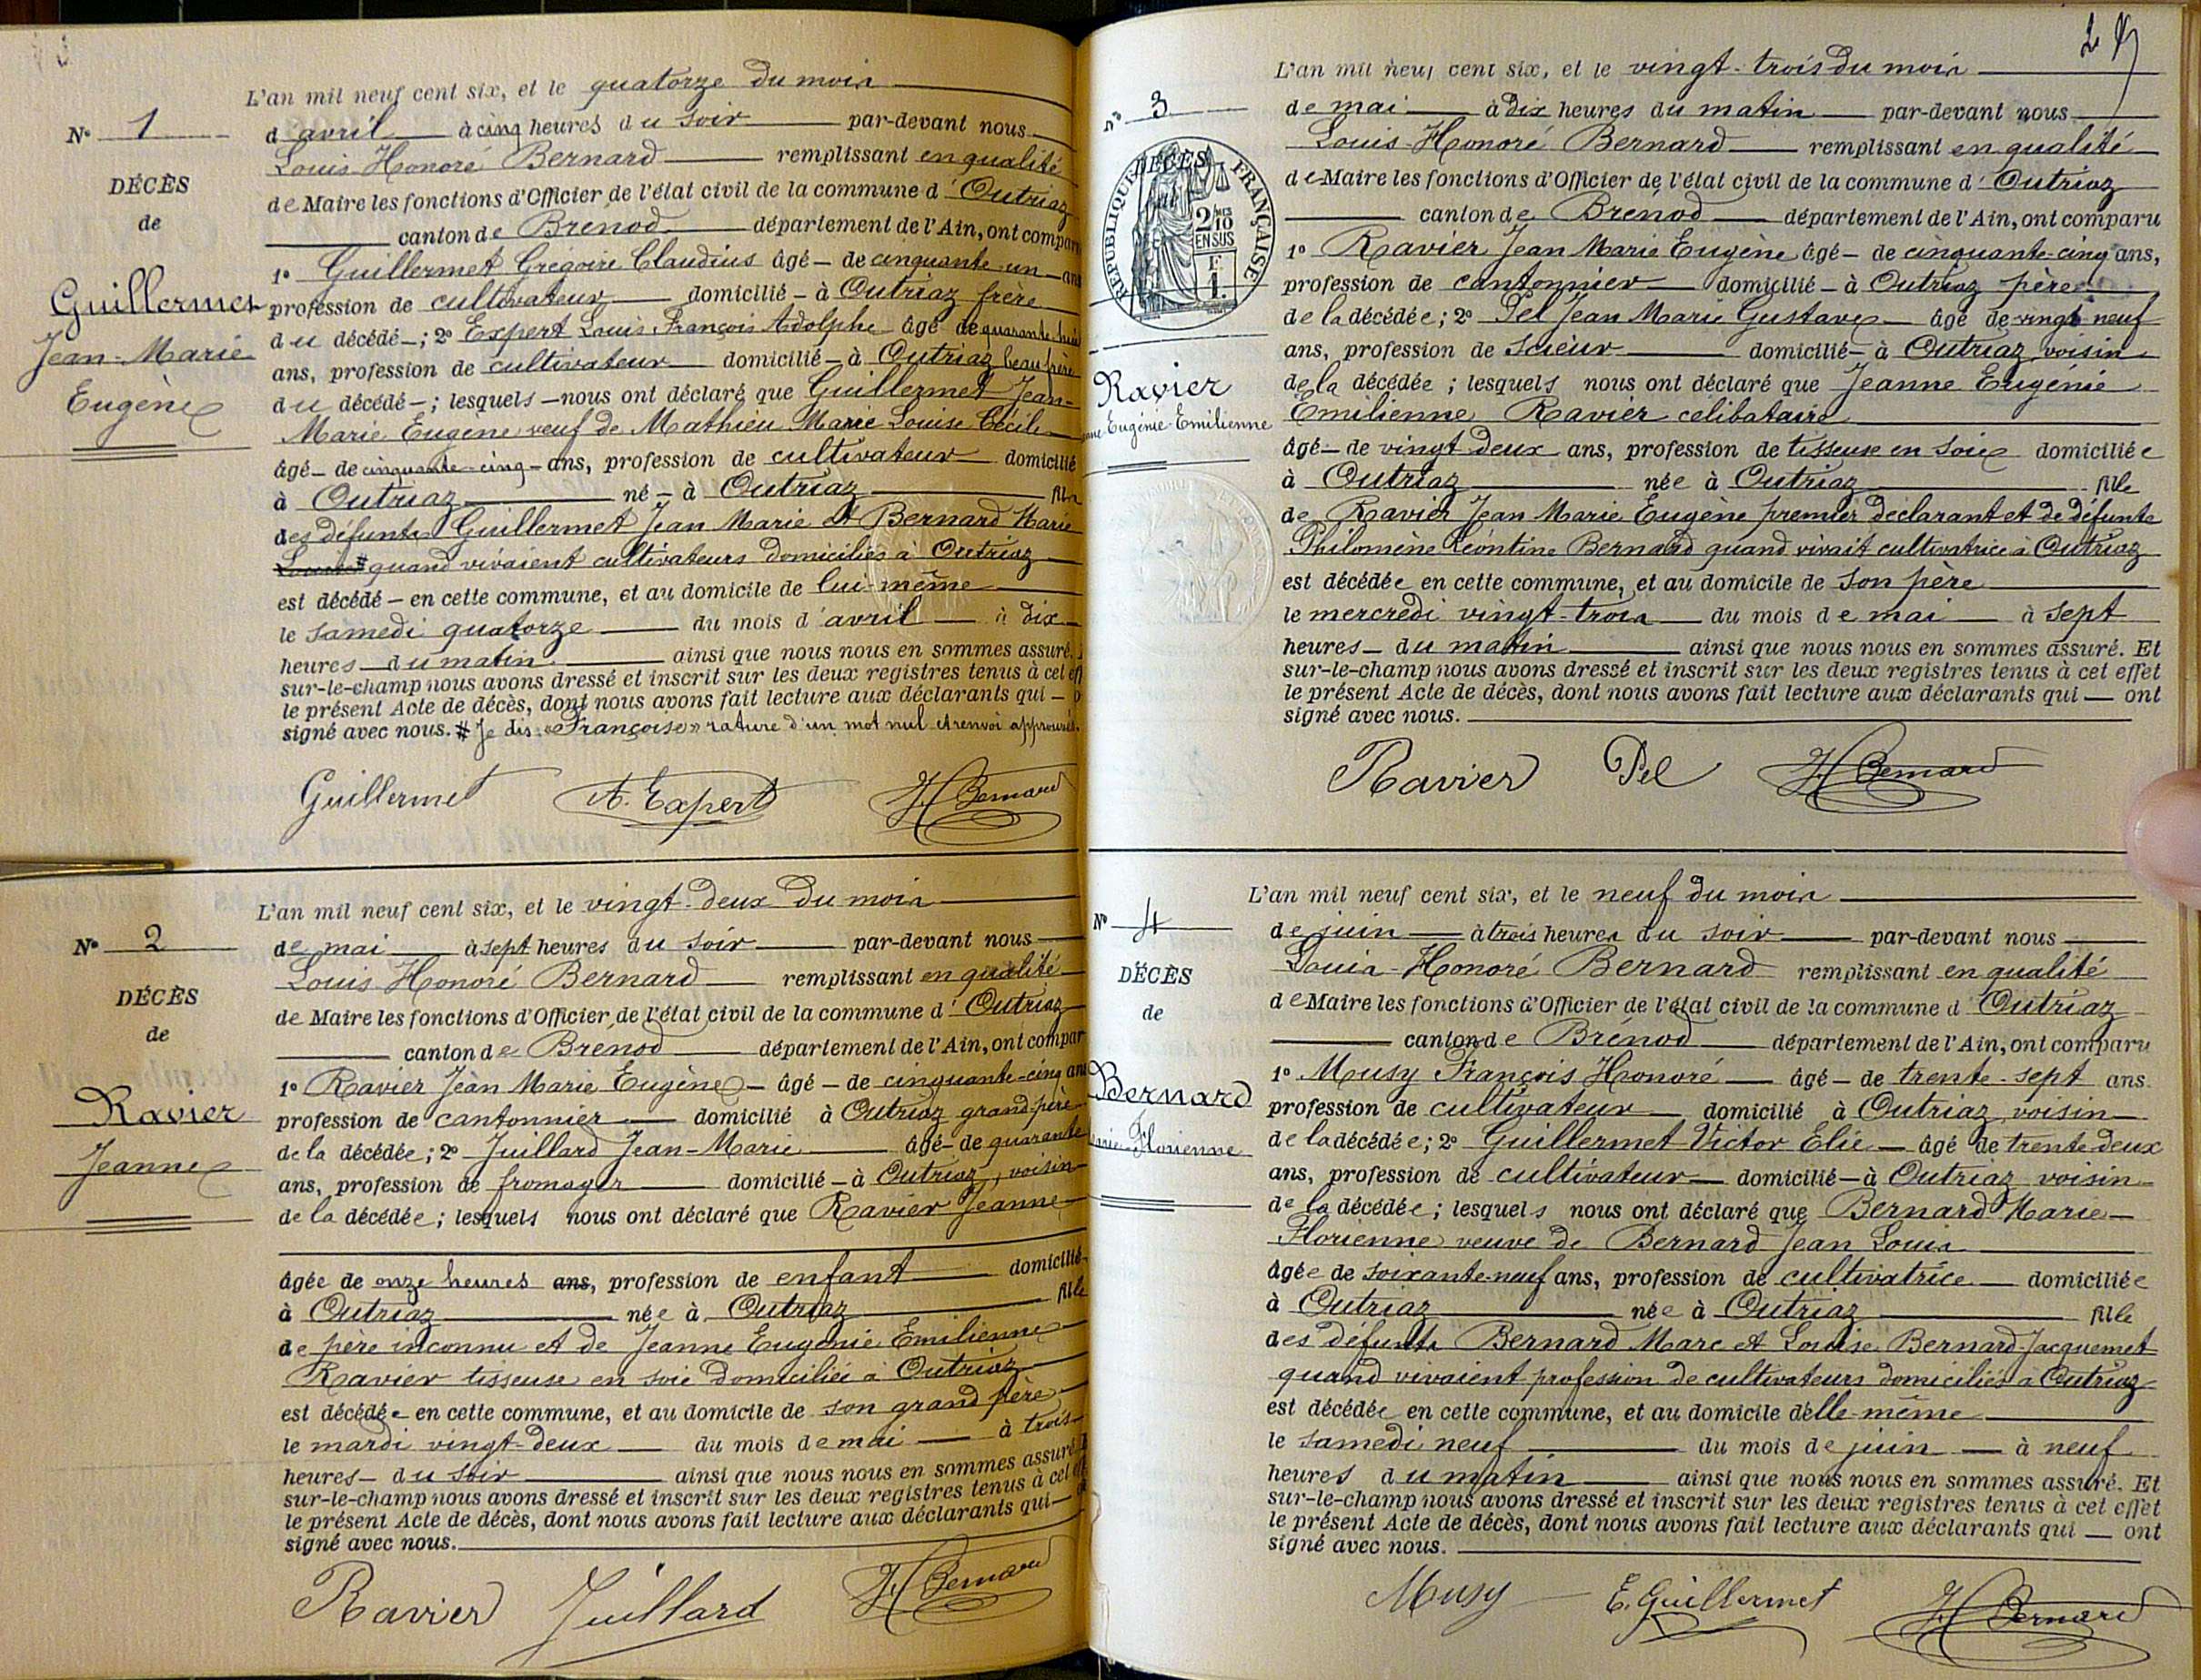 L'an mil neuf cent six, et le quatorze du mois
N° 1
d'avril à cinq heures du soir par-devant nous
Louis Honoré Bernard remplissant en qualité
DÉCÈS
de Maire les fonctions d'Officier de l'état civil de la commune d'Outriaz
de
canton de Brénod département de l'Ain, ont comparu
1° Guillermet Grégoire Claudius âgé de cinquante-un ans
Guillermet
profession de cultivateur domicilié à Outriaz frère
du décédé ; 2° Expert Louis François Adolphe âgé de quarante huit
Jean-Marie
ans, profession de cultivateur domicilié à Outriaz beau frère
Eugène
du décédé ; lesquels nous ont déclaré que Guillermet Jean-
Marie Eugène veuf de Mathieu Marie Louise Cécile
âgé de cinquante-cinq ans, profession de cultivateur domicilié
à Outriaz né à Outriaz fils
des défunts Guillermet Jean Marie et Bernard Marie
Louise # quand vivaient cultivateurs domiciliés à Outriaz
est décédé en cette commune, et au domicile de lui-même
le samedi quatorze du mois d'avril à dix
heures du matin ainsi que nous nous en sommes assuré.
sur-le-champ nous avons dressé et inscrit sur les deux registres tenus à cet eff
le présent Acte de décès, dont nous avons fait lecture aux déclarants qui o
signé avec nous. # Je dis : « Françoise » rature d'un mot nul et renvoi approuvés.
Guillermet A. Expert H Bernard
L'an mil neuf cent six, et le vingt-deux du mois
N° 2
de mai à sept heures du soir par-devant nous
Louis Honoré Bernard remplissant en qualité
DÉCÈS
de Maire les fonctions d'Officier de l'état civil de la commune d'Outriaz
de
canton de Brénod département de l'Ain, ont compar
1° Ravier Jean Marie Eugène âgé de cinquante-cinq ans
Ravier
profession de cantonnier domicilié à Outriaz grand-père
de la décédée ; 2° Juillard Jean-Marie âgé de quarante
Jeanne
ans, profession de fromager domicilié à Outriaz, voisin
de la décédée ; lesquels nous ont déclaré que Ravier Jeanne
âgée de onze heures ans, profession de enfant domicilié
à Outriaz née à Outriaz fille
de père inconnu et de Jeanne Eugénie Emilienne
Ravier tisseuse en soie domiciliée à Outriaz
est décédée en cette commune, et au domicile de son grand père
le mardi vingt-deux du mois de mai à trois
heures du soir ainsi que nous nous en sommes assuré.
sur-le-champ nous avons dressé et inscrit sur les deux registres tenus à cet
le présent Acte de décès, dont nous avons fait lecture aux déclarants qui
signé avec nous.
Ravier Juillard H Bernard
L'an mil neuf cent six, et le vingt-trois du mois
N° 3
de mai à dix heures du matin par-devant nous
Louis Honoré Bernard remplissant en qualité
DÉCÈS
RÉPUBLIQUE FRANÇAISE
2/10 EN SUS
F. 1.
de Maire les fonctions d'Officier de l'état civil de la commune d'Outriaz
canton de Brénod département de l'Ain, ont comparu
1° Ravier Jean Marie Eugène âgé de cinquante-cinq ans,
profession de cantonnier domicilié à Outriaz père
de la décédée ; 2° Pel Jean Marie Gustave âgé de vingt neuf
ans, profession de scieur domicilié à Outriaz voisin
Ravier
de la décédée ; lesquels nous ont déclaré que Jeanne Eugénie
Eugénie-Emilienne
Emilienne Ravier celibataire
âgé de vingt deux ans, profession de tisseuse en soie domiciliée
à Outriaz née à Outriaz fille
de Ravier Jean Marie Eugène premier déclarant et de défunte
Philomène Léontine Bernard quand vivait cultivatrice à Outriaz
est décédée en cette commune, et au domicile de son père
le mercredi vingt-trois du mois de mai à sept
heures du matin ainsi que nous nous en sommes assuré. Et
sur-le-champ nous avons dressé et inscrit sur les deux registres tenus à cet effet
le présent Acte de décès, dont nous avons fait lecture aux déclarants qui ont
signé avec nous.
Ravier Pel H Bernard
L'an mil neuf cent six, et le neuf du mois
N° 4
de juin à trois heures du soir par-devant nous
Louis-Honoré Bernard remplissant en qualité
DÉCÈS
de Maire les fonctions d'Officier de l'état civil de la commune d'Outriaz
de
canton de Brénod département de l'Ain, ont comparu
1° Musy François Honoré âgé de trente-sept ans.
Bernard
profession de cultivateur domicilié à Outriaz voisin
de la décédée ; 2° Guillermet Victor Elie âgé de trente-deux
Marie-Florienne
ans, profession de cultivateur domicilié à Outriaz voisin
de la décédée ; lesquels nous ont déclaré que Bernard Marie
Florienne veuve de Bernard Jean Louis
âgée de soixante-neuf ans, profession de cultivatrice domiciliée
à Outriaz née à Outriaz fille
des défunts Bernard Marc et Louise Bernard-Jacquemet
quand vivaient profession de cultivateurs domiciliés à Outriaz
est décédée en cette commune, et au domicile d'elle-même
le samedi neuf du mois de juin à neuf
heures du matin ainsi que nous nous en sommes assuré. Et
sur-le-champ nous avons dressé et inscrit sur les deux registres tenus à cet effet
le présent Acte de décès, dont nous avons fait lecture aux déclarants qui ont
signé avec nous.
Musy E. Guillermet H Bernard